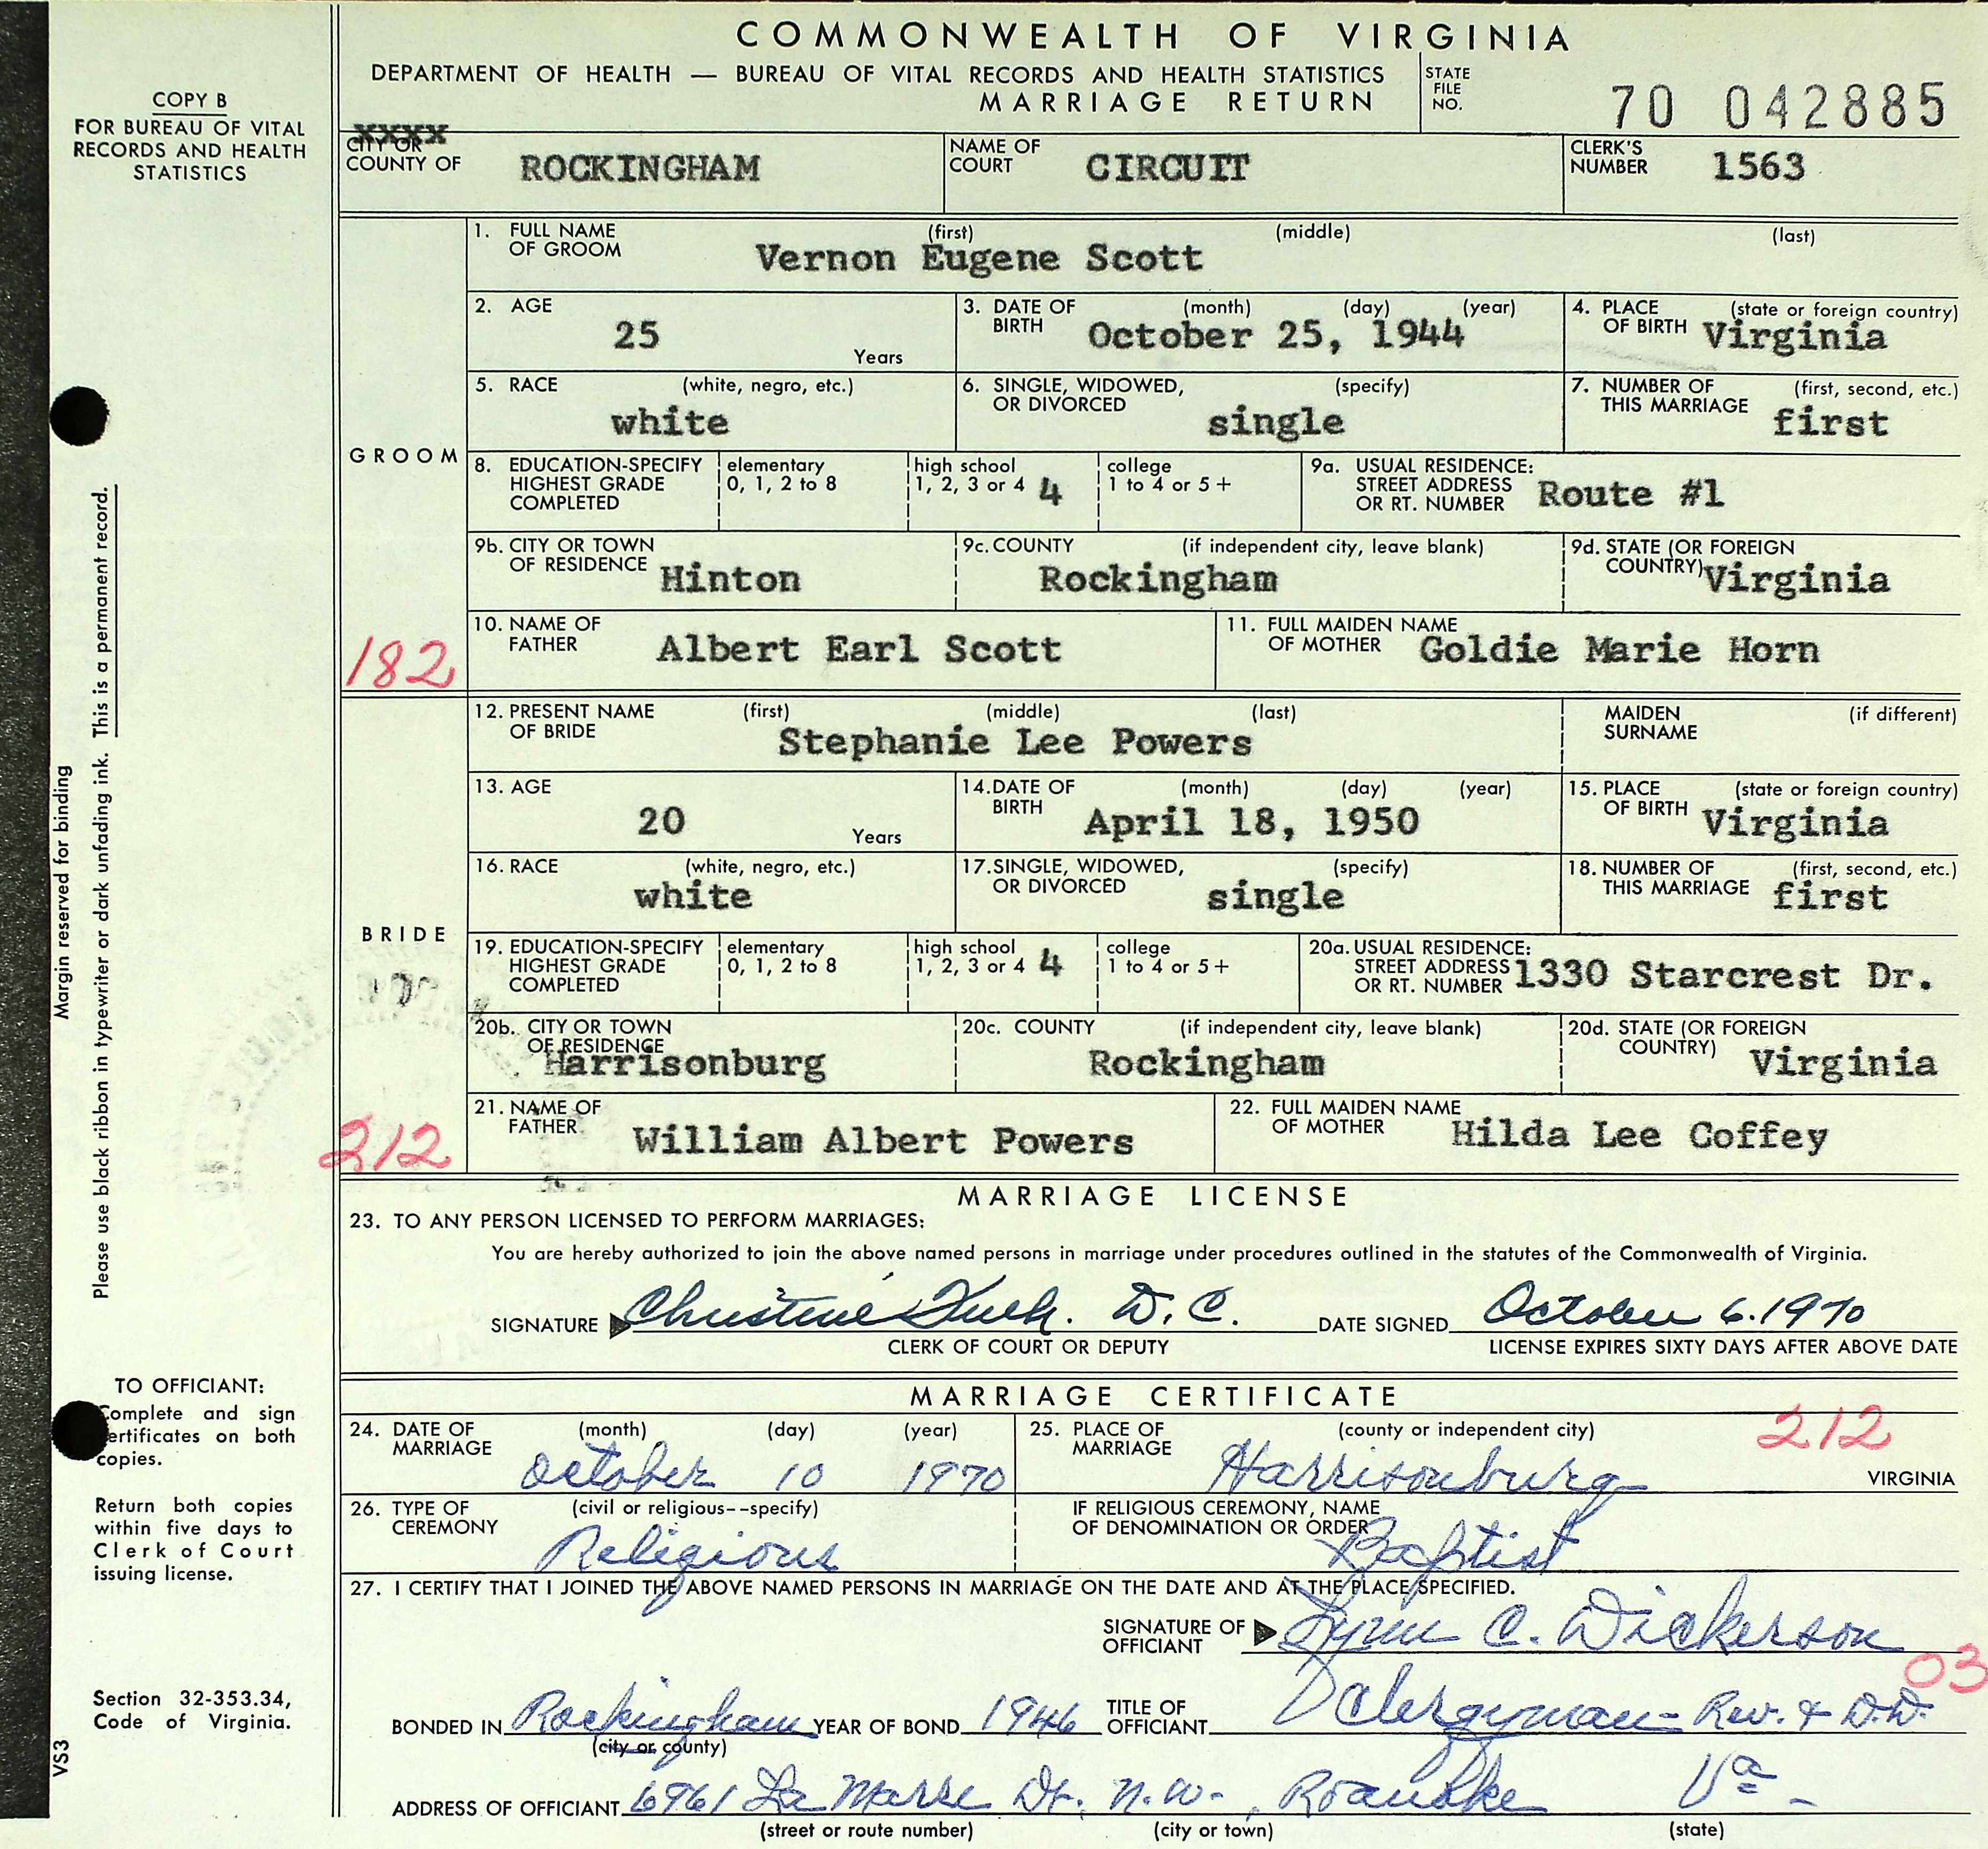 COMMONWEALTH OF VIRGINIA
DEPARTMENT OF HEALTH — BUREAU OF VITAL RECORDS AND HEALTH STATISTICS
MARRIAGE RETURN
STATE FILE NO. 70 042885
COPY B
FOR BUREAU OF VITAL
RECORDS AND HEALTH
STATISTICS
XXXX
CITY OR
COUNTY OF ROCKINGHAM
NAME OF COURT CIRCUIT
CLERK'S NUMBER 1563
GROOM
182
1. FULL NAME OF GROOM (first) (middle) (last)
Vernon Eugene Scott
2. AGE 25 Years
3. DATE OF BIRTH (month) (day) (year) October 25, 1944
4. PLACE OF BIRTH (state or foreign country) Virginia
5. RACE (white, negro, etc.) white
6. SINGLE, WIDOWED, OR DIVORCED (specify) single
7. NUMBER OF THIS MARRIAGE (first, second, etc.) first
8. EDUCATION-SPECIFY HIGHEST GRADE COMPLETED
elementary 0, 1, 2 to 8
high school 1, 2, 3 or 4 4
college 1 to 4 or 5+
9a. USUAL RESIDENCE: STREET ADDRESS OR RT. NUMBER Route #1
9b. CITY OR TOWN OF RESIDENCE Hinton
9c. COUNTY (if independent city, leave blank) Rockingham
9d. STATE (OR FOREIGN COUNTRY) Virginia
10. NAME OF FATHER Albert Earl Scott
11. FULL MAIDEN NAME OF MOTHER Goldie Marie Horn
BRIDE
212
12. PRESENT NAME OF BRIDE (first) (middle) (last)
Stephanie Lee Powers
MAIDEN SURNAME (if different)
13. AGE 20 Years
14. DATE OF BIRTH (month) (day) (year) April 18, 1950
15. PLACE OF BIRTH (state or foreign country) Virginia
16. RACE (white, negro, etc.) white
17. SINGLE, WIDOWED, OR DIVORCED (specify) single
18. NUMBER OF THIS MARRIAGE (first, second, etc.) first
19. EDUCATION-SPECIFY HIGHEST GRADE COMPLETED
elementary 0, 1, 2 to 8
high school 1, 2, 3 or 4 4
college 1 to 4 or 5+
20a. USUAL RESIDENCE: STREET ADDRESS OR RT. NUMBER 1330 Starcrest Dr.
20b. CITY OR TOWN OF RESIDENCE Harrisonburg
20c. COUNTY (if independent city, leave blank) Rockingham
20d. STATE (OR FOREIGN COUNTRY) Virginia
21. NAME OF FATHER William Albert Powers
22. FULL MAIDEN NAME OF MOTHER Hilda Lee Coffey
MARRIAGE LICENSE
23. TO ANY PERSON LICENSED TO PERFORM MARRIAGES:
You are hereby authorized to join the above named persons in marriage under procedures outlined in the statutes of the Commonwealth of Virginia.
SIGNATURE Christine D.C. DATE SIGNED October 6. 1970
CLERK OF COURT OR DEPUTY LICENSE EXPIRES SIXTY DAYS AFTER ABOVE DATE
MARRIAGE CERTIFICATE
24. DATE OF MARRIAGE (month) (day) (year) October 10 1970
25. PLACE OF MARRIAGE (county or independent city) Harrisonburg 212 VIRGINIA
26. TYPE OF CEREMONY (civil or religious--specify) Religious
IF RELIGIOUS CEREMONY, NAME OF DENOMINATION OR ORDER Baptist
27. I CERTIFY THAT I JOINED THE ABOVE NAMED PERSONS IN MARRIAGE ON THE DATE AND AT THE PLACE SPECIFIED.
SIGNATURE OF OFFICIANT Lynn C. Dickerson
03
BONDED IN Rockingham YEAR OF BOND 1946 TITLE OF OFFICIANT Clergyman - Rev. & D.D.
(city or county)
ADDRESS OF OFFICIANT 6961 La Marre Dr. N.W., Roanoke Va
(street or route number) (city or town) (state)
Margin reserved for binding
Please use black ribbon in typewriter or dark unfading ink. This is a permanent record.
TO OFFICIANT:
Complete and sign
certificates on both
copies.
Return both copies
within five days to
Clerk of Court
issuing license.
Section 32-353.34,
Code of Virginia.
VS3